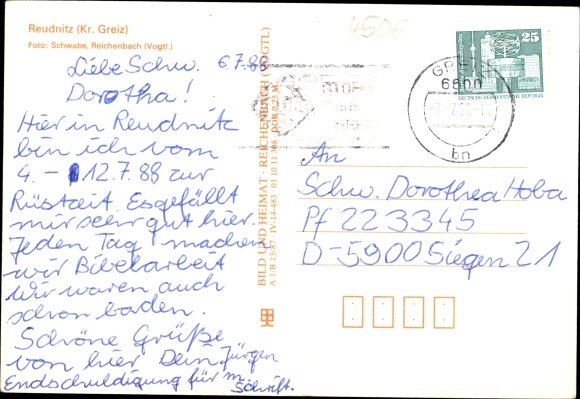 Reudnitz (Kr. Greiz)
Foto: Schwabe, Reichenbach (Vogtl.)
450€
Liebe Schw. 6.7.88
Dorotha!
Hier in Reudnitz
bin ich vom
4. - 12.7.88 zur
Rüstzeit. Es gefällt
mir sehr gut hier.
Jeden Tag machen
wir Bibelarbeit
Wir waren auch
schon baden.
Schöne Grüße
von hier Dein Jürgen
Endschuldigung für m.
Schrift.
BILD UND HEIMAT · REICHENBACH (VOGTL)
A 1/B 13/87 IV-14-483 01 10 11 308 DDR 0,25 M
25
DEUTSCHE DEMOKRATISCHE REPUBLIK
6600
bn
An
Schw. Dorothea Hoba
Pf 223345
D-5900 Siegen 21